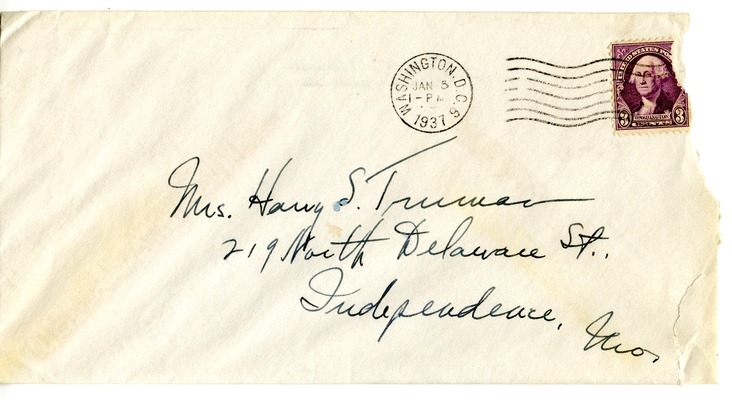 WASHINGTON, D.C. 6
JAN 5
1-PM
1937
UNITED STATES PO
3 WASHINGTON 3
Mrs. Harry S. Truman
219 North Delaware St.,
Independence,
Mo.